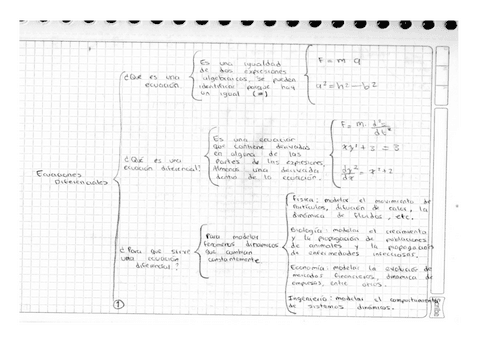 Ecuaciones
Diferenciales
¿Que es una
ecuación
Es una igualdad
de dos expresiones
algebraicas, se pueden
identificar porque hay
un igual (=)
F = m a
¿Qué es una
ecuación diferencial?
Es una ecuacion
que contiene derivadas
en alguna de las
partes de las expresiones,
Almenos una derivada
dentro de la ecuación.
xy' + 3 = 3
¿Para que sirve
una ecuación
diferencial?
Para modelar
fenómenos dinámicos
que cambian
constantemente
Física: modelar el movimiento de
partículas, dilución de calor, la
dinámica de fluidos, etc.
Biología: modelar el crecimiento
y la propagación de poblaciones
de animales y la propagación
de enfermedades infecciosas.
Economía: modelar la evolución de
mercados financieros, dinámica de
empresas, entre otros.
Ingeniería: modelar el comportamiento
de sistemas dinámicos.
1
Scribe